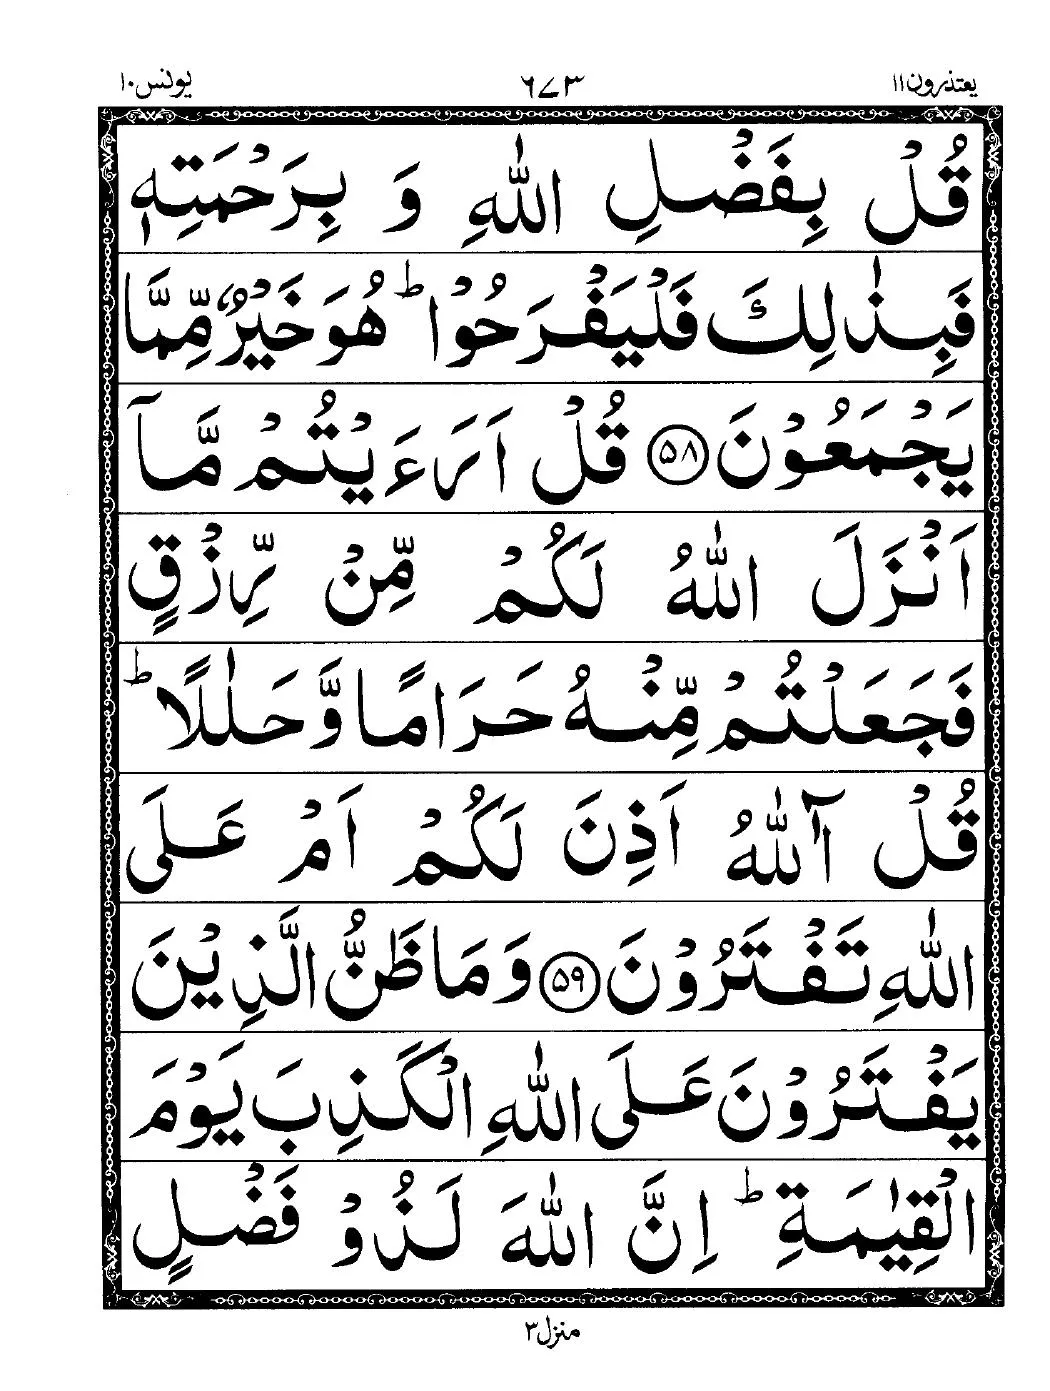 یعتذرون۱۱ ۶۷۳ یونس۱۰
قُلْ بِفَضْلِ اللّٰهِ وَ بِرَحْمَتِهٖ
فَبِذٰلِكَ فَلْیَفْرَحُوْاؕ هُوَ خَیْرٌ مِّمَّا
یَجْمَعُوْنَ ۝۵۸ قُلْ اَرَءَیْتُمْ مَّاۤ
اَنْزَلَ اللّٰهُ لَكُمْ مِّنْ رِّزْقٍ
فَجَعَلْتُمْ مِّنْهُ حَرَامًا وَّ حَلٰلًاؕ
قُلْ آٰللّٰهُ اَذِنَ لَكُمْ اَمْ عَلَى
اللّٰهِ تَفْتَرُوْنَ ۝۵۹ وَ مَا ظَنُّ الَّذِیْنَ
یَفْتَرُوْنَ عَلَى اللّٰهِ الْكَذِبَ یَوْمَ
الْقِیٰمَةِؕ اِنَّ اللّٰهَ لَذُوْ فَضْلٍ
منزل۳